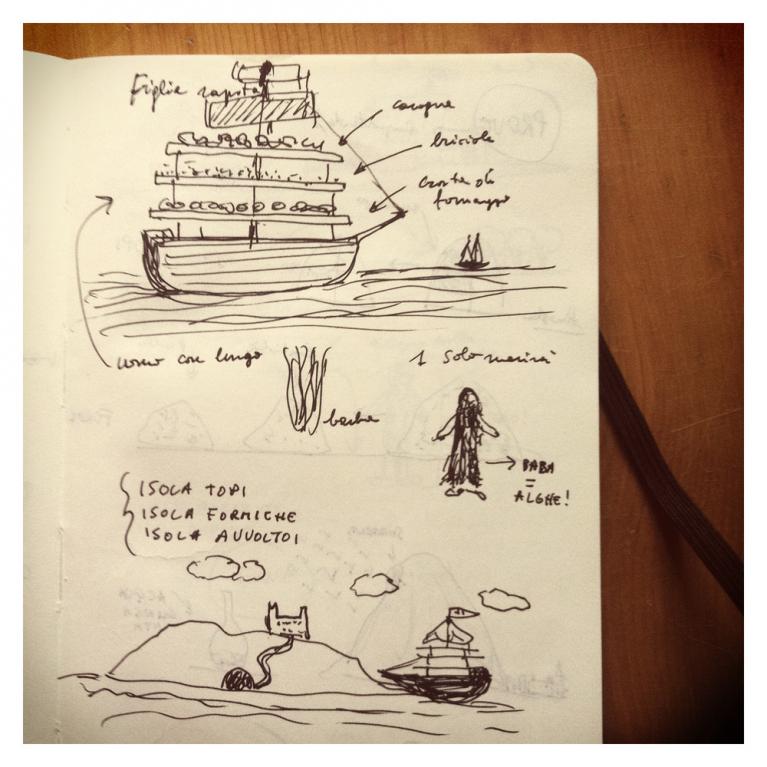 Figlia rapita
carogne
briciole
croste di
formaggio
uomo con lunga
barba
1 solo
BABA
=
ALGHE!
ISOLA TOPI
ISOLA FORMICHE
ISOLA AVVOLTOI